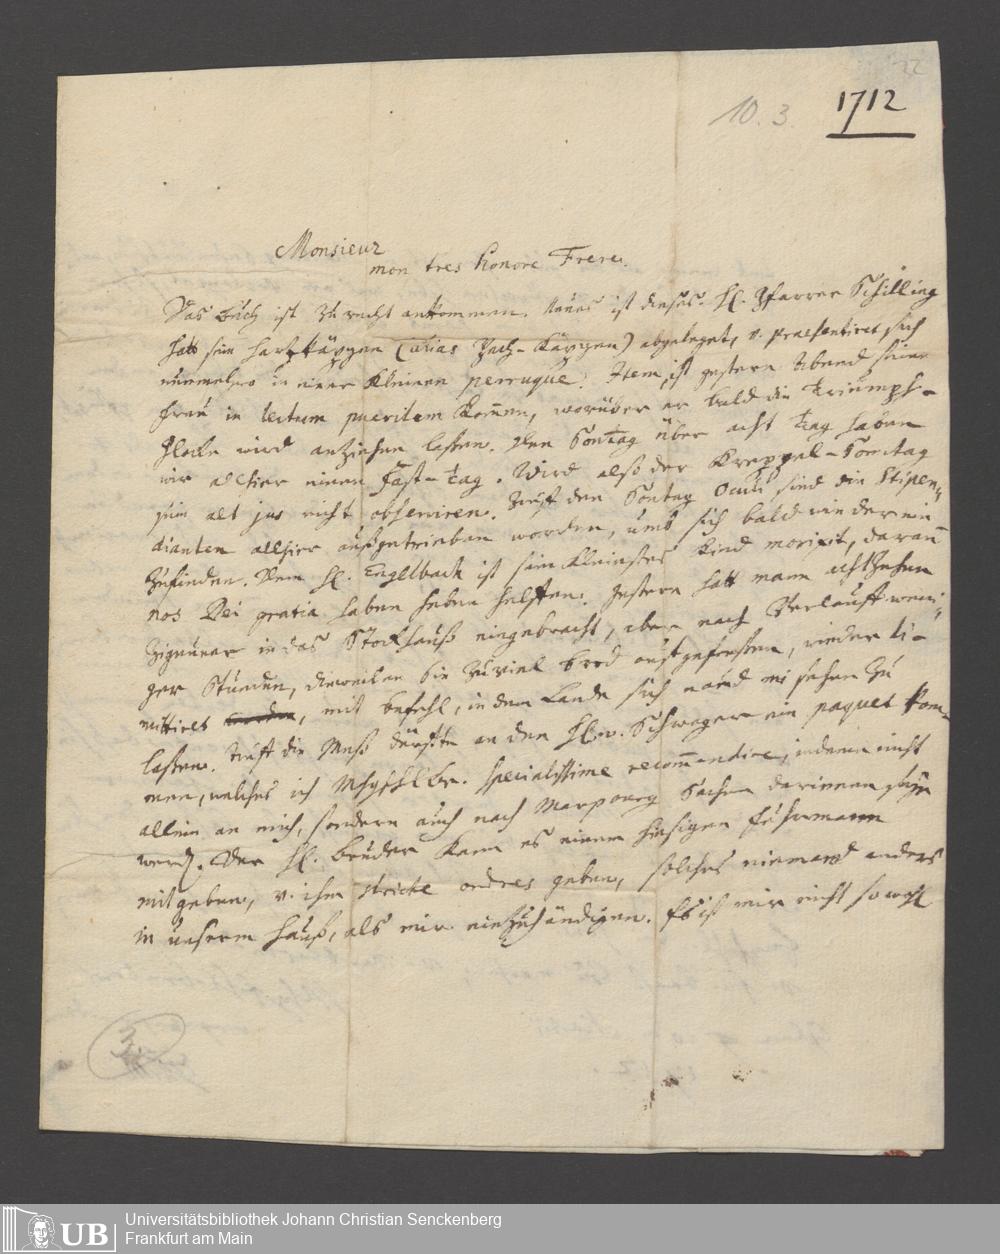 22
10. 3. 1712
Monsieur
mon tres honoré Frere.
Das buch ist zu recht ankommen. Neues ist dieses. H. Pfarrer Schilling
hatt sein hartzkäpgen (alias Pech-Käpgen) abgeleget, v. praesentiret sich
nunmehro in einer kleinen perruque. Item, ist gestern Abend seine
Frau in lectum puerilem kommen, worüber er bald die Triumph-
Glocke wird anziehen laßen. Den Sontag über acht tag haben
wir allhier einen Fast-tag. Wird also der Kreppel-Sontag
sein alt jus nicht observiren. Auf den Sontag Oculi sind die Stipen-
dianten allhier außgetrieben worden, umb sich bald wieder ein
zufinden. Dem H. Engelbach ist sein kleinstes Kind morirt, daran
nos Dei gratia haben heben helffen. Gestern hatt mann achtzehen
Zigeuner in das Stockhauß eingebracht, aber nach Verlauff weni-
ger Stunden, dieweilen sie zu viel brod aufgefreßen, wieder di-
mittiret, mit befehl, in dem Lande sich nicht mehr sehen zu
laßen. Auf die Meß dürffte an den H. Schwager ein paquet kom-
men, welches ich MhghhLbr. specialissime recommendire, indeme nicht
allein an mich, sondern auch nach Marpourg Sachen darinnen seyn
werd. Der H. bruder kann es einem hiesigen Fuhrmann
mitgeben, v. ihm stricte ordres geben, solches niemand anders
in unserm Hauß, als mir einzuhändigen. Es ist mir nicht so wohl
UB
Universitätsbibliothek Johann Christian Senckenberg
Frankfurt am Main